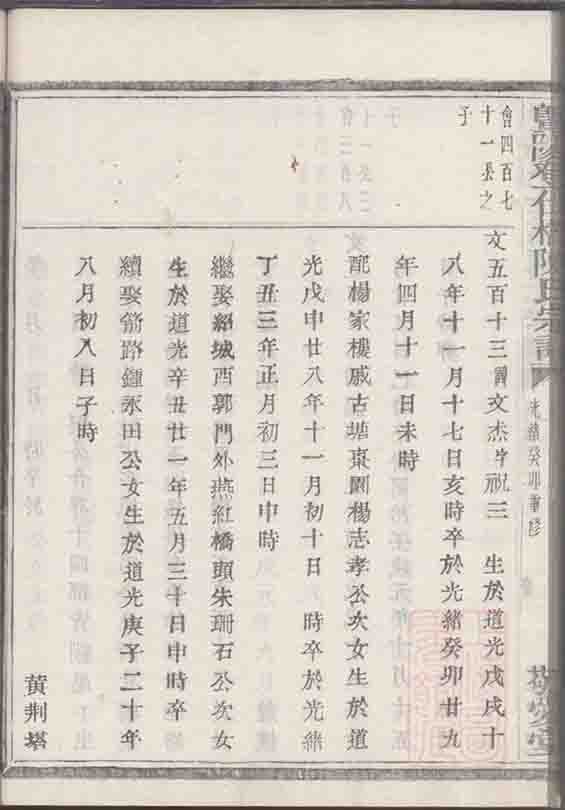 陳氏宗譜
光緒癸卯重修
會四百七
十一張之
子
文五百十三諱文杰字祝三 生於道光戊戌十
八年十一月十七日亥時卒於光緒癸卯廿九
年四月十一日未時
配楊家樓戚古塘東園楊志孝公次女生於道
光戊申廿八年十一月初十日 時卒於光緒
丁丑三年正月初三日申時
繼娶紹城西郭門外燕紅橋頭朱珊石公次女
生於道光辛丑廿一年五月三十日申時卒
續娶箭路鍾永田公女生於道光庚子二十年
八月初八日子時
黃荆塔